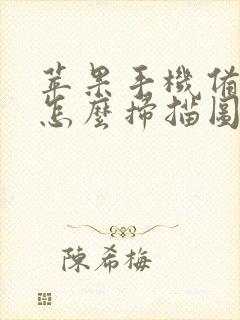 苹果手機備
怎麼掃描圖
陳希梅